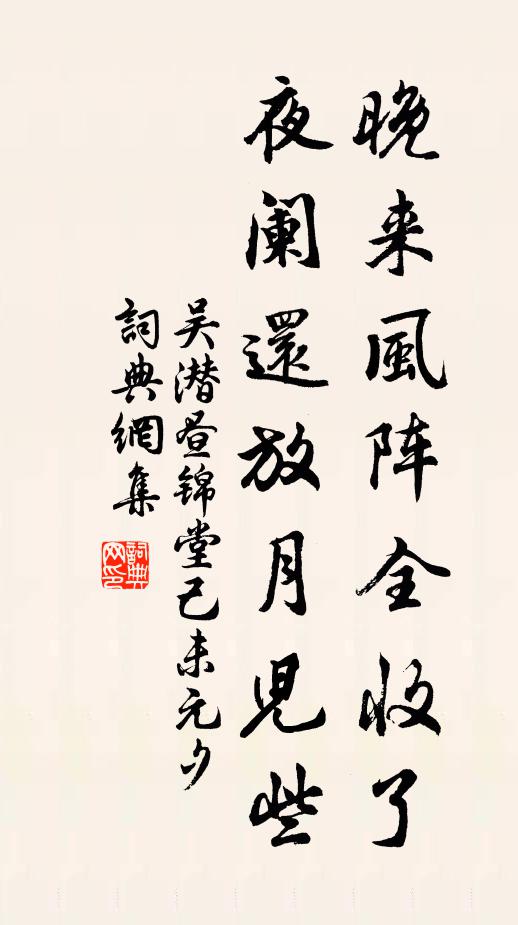 晚来風阵全收了
夜阑還放月児些
吴潜昼锦堂己未元夕
詞典網集
詞典网印